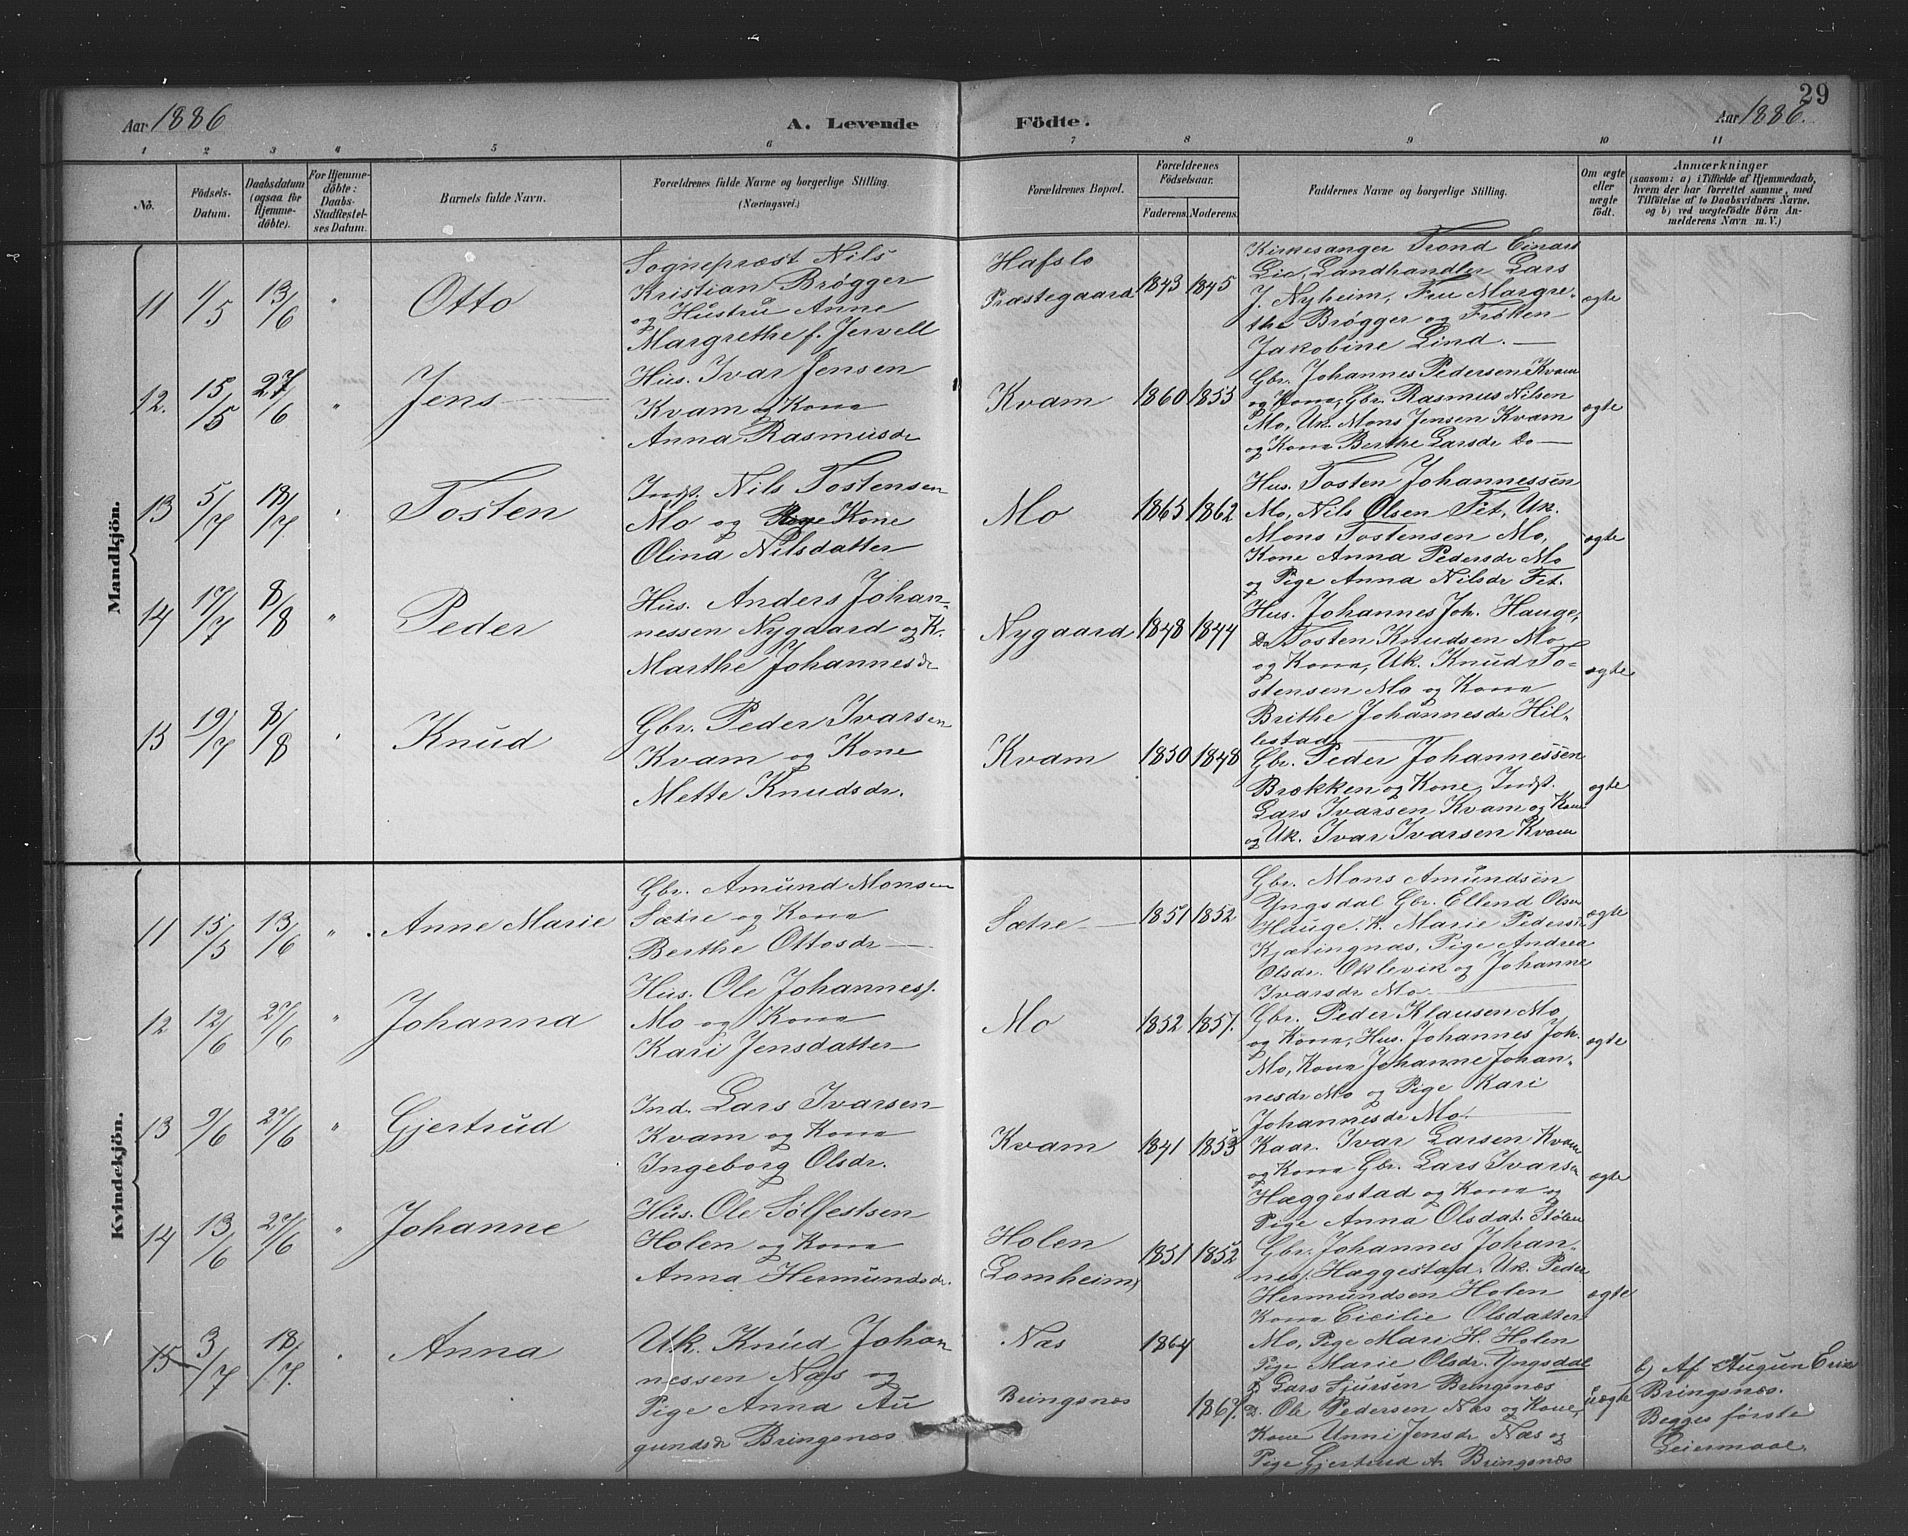 29
Aar 1886
A. Levende Födte.
Aar 1886.
1 2 3 4 5 6 7 8 9 10 11
No.
Födsels-Datum.
Daabsdatum (ogsaa for Hjemmedöbte).
For Hjemmedöbte: Daabs-Stadfæstelses Datum.
Barnets fulde Navn.
Forældrenes fulde Navne og borgerlige Stilling.
(Næringsvei.)
Forældrenes Bopæl.
Forældrenes Födselsaar.
Faderens. Moderens.
Faddernes Navne og borgerlige Stilling.
Om ægte eller uægte födt.
Anmærkninger
(saasom: a) i Tilfælde af Hjemmedaab,
hvem der har forrettet samme, med
Tilföielse af to Daabsvidners Navne.
og b) ved uægtefödte Börn Anmelderens Navn m. V.)
Mandkjön.
11 1/5 13/6 " Otto
Sognepræst Nils
Kristian Brøgger
og Hustru Anne
Margrethe f. Jervell
Hafslo
Præstegaard 1843 1845
Kirkesanger Trond Einars
Lie, Landhandler Lars
J. Nyheim, Fru Margre-
the Brøgger og Frøken
Jakobine Lind. —
ægte
12. 15/5 27/6 " Jens
Hus. Ivar Jensen
Kvam og Kona
Anna Rasmusdr
Kvam 1860 1855
Gbr. Johannes Pedersen Kvam
og Kona, Gbr. Rasmus Nilsen
Mo, Uk. Mons Jensen Kvam
og Kona Berthe Larsdr Do —
ægte
13 5/7 18/7 " Tosten
Indst. Nils Tostensen
Mo og Kone
Olina Nilsdatter
Mo 1865 1862
Hus. Tosten Johannessen
Mo, Nils Olsen Fet, Uk.
Mons Tostensen Mo,
Kone Anna Pedersdr Mo
og Pige Anna Nilsdr Fet.
ægte
14 17/7 8/8 " Peder
Hus. Anders Johan-
nessen Nygaard og K.
Marthe Johannesdr
Nygaard 1848 1844
Hus. Johannes Joh. Hauge,
Do Tosten Knudsen Mo
og Kona, Uk. Knud To-
stensen Mo og Kona
Brithe Johannesdr Hil-
lestad
ægte
15 19/7 8/8 " Knud
Gbr. Peder Ivarsen
Kvam og Kone
Mette Knudsdr.
Kvam 1850 1848
Gbr. Peder Johannessen
Brækken og Kone, Indst.
Lars Ivarsen Kvam og Kone
og Uk. Ivar Ivarsen Kvam
ægte
Kvindekjön.
11 15/5 13/6 " Anne Marie
Gbr. Amund Monsen
Sætre og Kona
Berthe Ottosdr —
Sætre — 1851 1852
Gbr. Mons Amundsen
Yngsdal Gbr. Ellend Olsen
Hauge. K. Marie Peders.
Kjæringnæs, Pige Andrea
Olsdr. Oklevik og Johanne
Ivarsdr Mo. —
ægte
12 12/6 27/6 " Johanna
Hus. Ole Johannes.
Mo og Kona
Kari Jensdatter
Mo 1852 1857.
Gbr. Peder Klausen Mo
og Kona, Hus. Johannes Joh.
Mo, Kona Johanne Johan-
nesdr Mo og Pige Kari
Johannesdr Mo.
ægte
13 9/6 27/6 " Gjertrud
Ind. Lars Ivarsen
Kvam og Kona
Ingeborg Olsdr.
Kvam 1841 1853
Kaar. Ivar Larsen Kvam
og Kona Gbr. Lars Ivarsen
Hæggestad og Kona og
Pige Anna Olsdat. Stølen
ægte
14 13/6 27/6 " Johanne
Hus. Ole Solfestsen
Holen og Kona
Anna Hermundsdr.
Holen
(Lomheim) 1851 1852
Gbr. Johannes Johan-
nes. Hæggestad. Uk. Peder
Hermundsen Holen
Kona Cicilie Olsdatter
Mo, Pige Mari H. Holen
ægte
15 3/7 18/7. " Anna
Uk. Knud Johan
nessen Næs og
Pige Anna Au
gundsdr Bringsnæs
Næs 1864
Bringsnæs 1867.
Pige Marie Olsdr. Yngsdal
Lars Sjursen Bringsnæs
D. Ole Pedersen Næs og Kone,
Kone Unni Jensdr Næs og
Pige Gjertrud A. Bringsnæs
uægte
b) Af Augun Erik
Bringsnæs.
Begges første
Leiermaal.